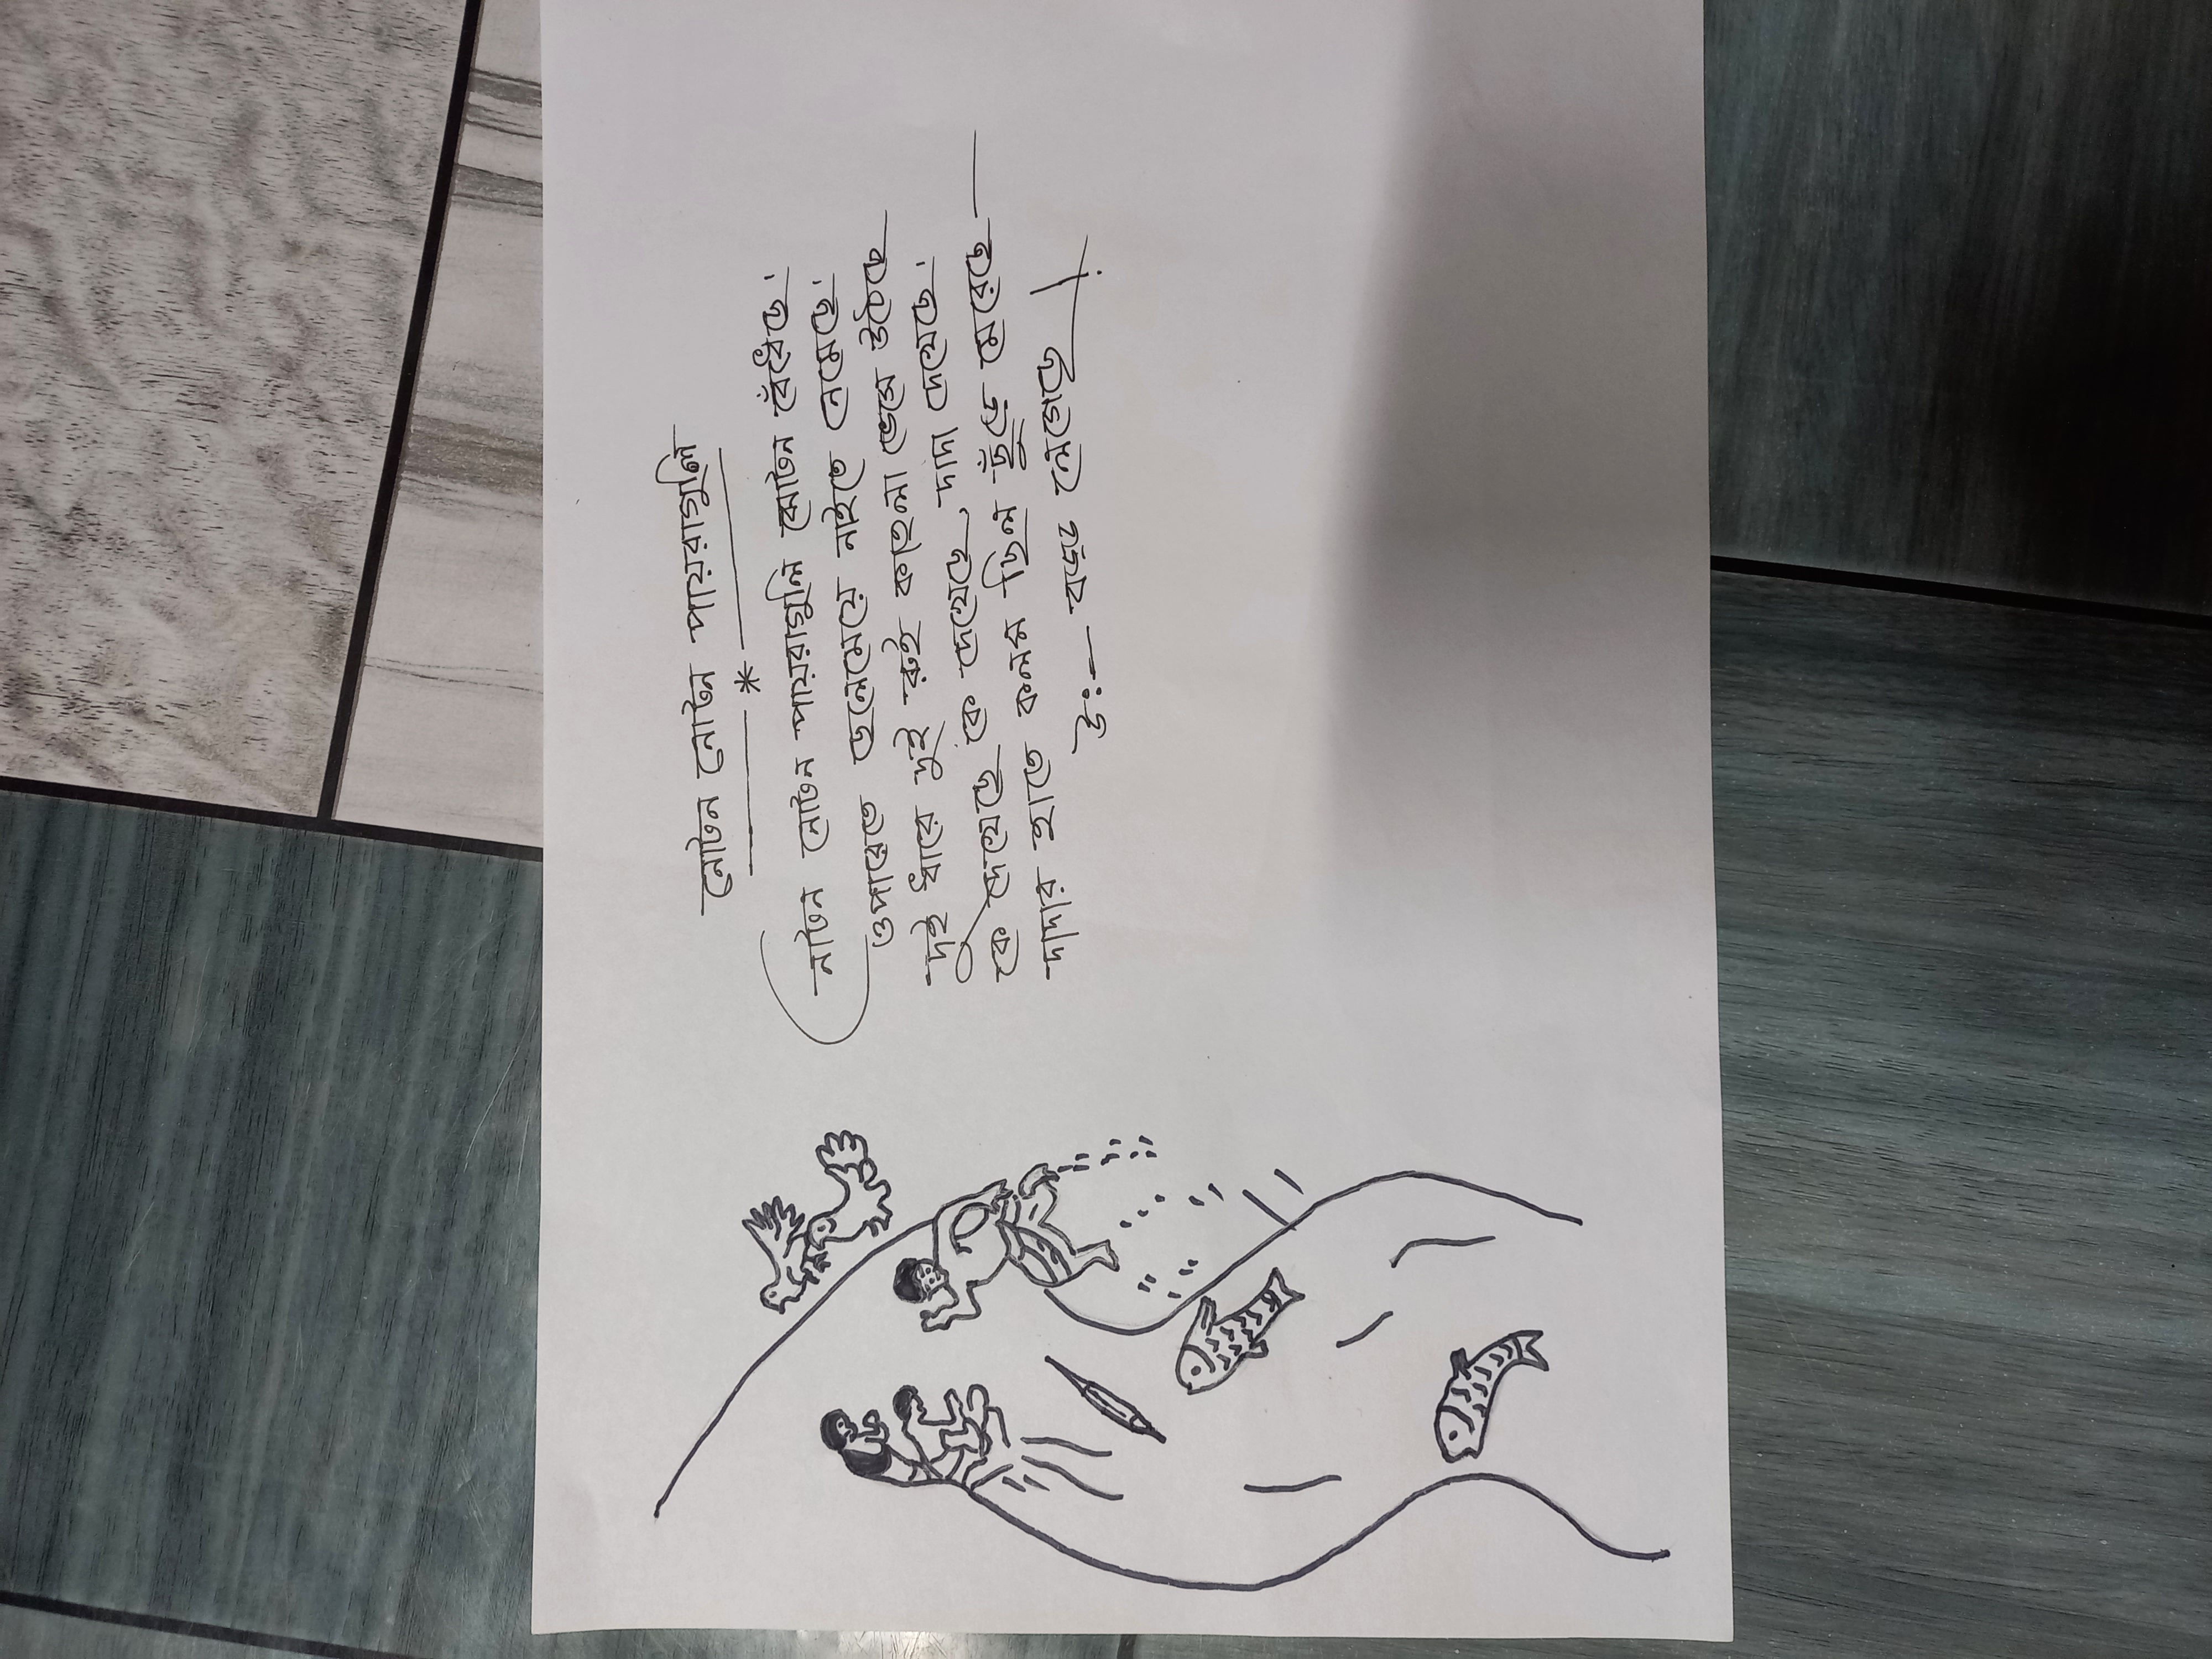 নোটন নোটন পায়রাগুলি
নোটন নোটন পায়রাগুলি ঝোটন বেঁধেছে।
ওপারেতে ছেলেমেয়ে নাইতে নেমেছে।
দুই ধারে দুই রুই কাতলা ভেসে উঠেছে
কে দেখেছে কে দেখেছে, দাদা দেখেছে।
দাদার হাতে কলম ছিল ছুঁড়ে মেরেছে
উঃ বড্ড লেগেছে!